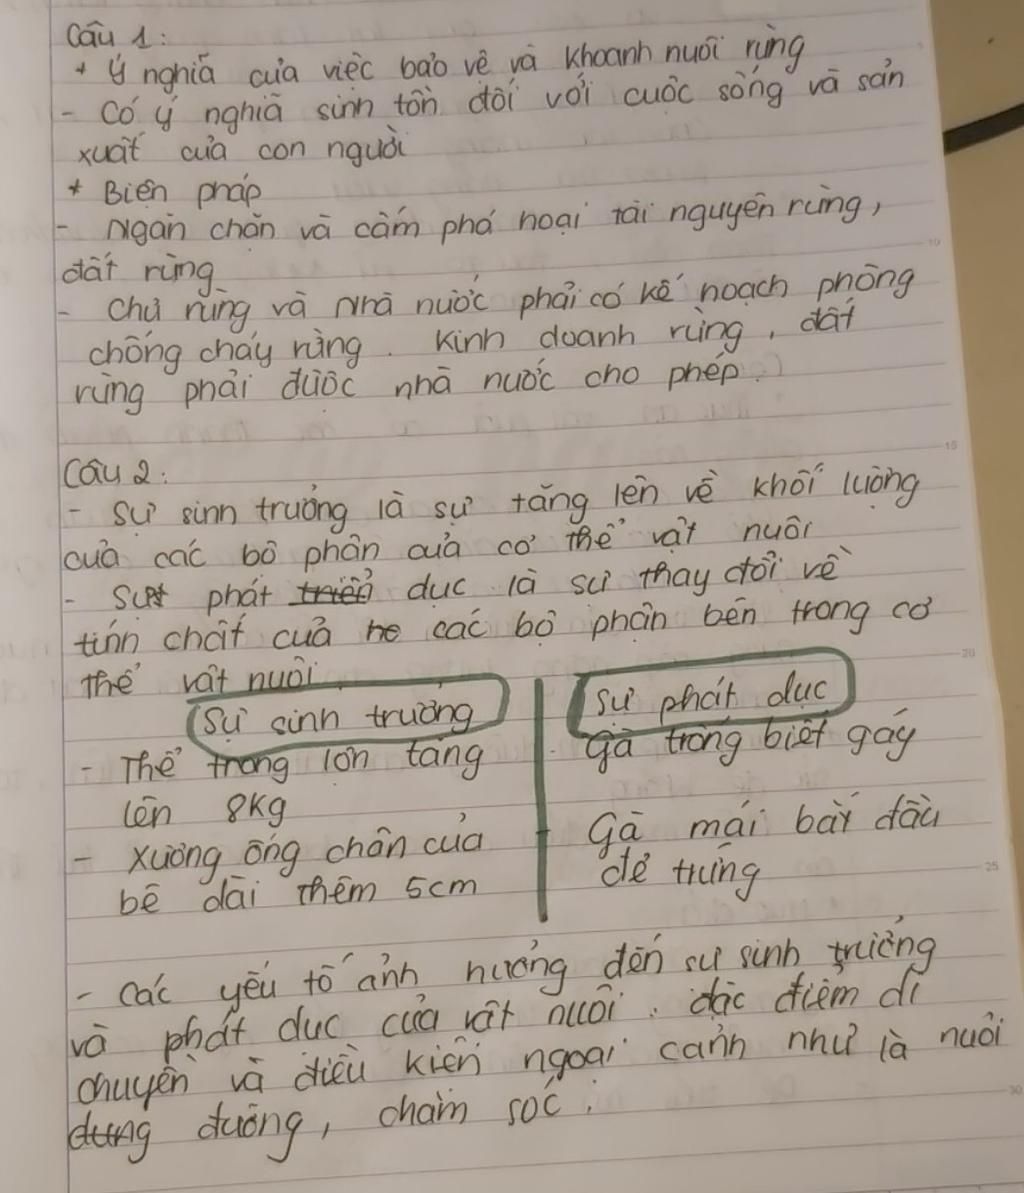 Câu 1:
* Ý nghĩa của việc bảo vệ và khoanh nuôi rừng
- Có ý nghĩa sinh tồn đối với cuộc sống và sản
xuất của con người
* Biện pháp
- Ngăn chặn và cấm phá hoại tài nguyên rừng,
đất rừng
- Chủ rừng và Nhà nước phải có kế hoạch phòng
chống cháy rừng. Kinh doanh rừng, đất
rừng phải được nhà nước cho phép.
Câu 2:
- Sự sinh trưởng là sự tăng lên về khối lượng
của các bộ phận của cơ thể vật nuôi
- Sự phát triển dục là sự thay đổi về
tính chất của các bộ phận bên trong cơ
thể vật nuôi
Sự sinh trưởng
- Thể trọng lợn tăng
lên 8kg
- Xương ống chân của
bê dài thêm 5cm
Sự phát dục
- Gà trống biết gáy
- Gà mái bắt đầu
đẻ trứng
- Các yếu tố ảnh hưởng đến sự sinh trưởng
và phát dục của vật nuôi: đặc điểm di
chuyền và điều kiện ngoại cảnh như là nuôi
dưng dưỡng, chăm sóc.